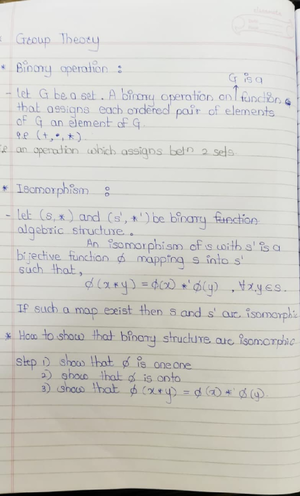 Group Theory
* Binary operation :
G is a
- let G be a set. A binary operation on function
that assigns each ordered pair of elements
of G an element of G.
i.e (+, •, *)
i.e an operation which assigns betn 2 sets
* Isomorphism :
- let (s, *) and (s', *') be binary function
algebric structure.
An isomorphism of s with s' is a
bijective function ϕ mapping s into s'
such that,
ϕ(x*y) = ϕ(x) *' ϕ(y) , ∀x,y ∈ s.
If such a map exist then s and s' are isomorphic
* How to show that binary structure are isomorphic
Step 1) show that ϕ is one one
2) show that ϕ is onto
3) show that ϕ(x*y) = ϕ(x) *' ϕ(y)